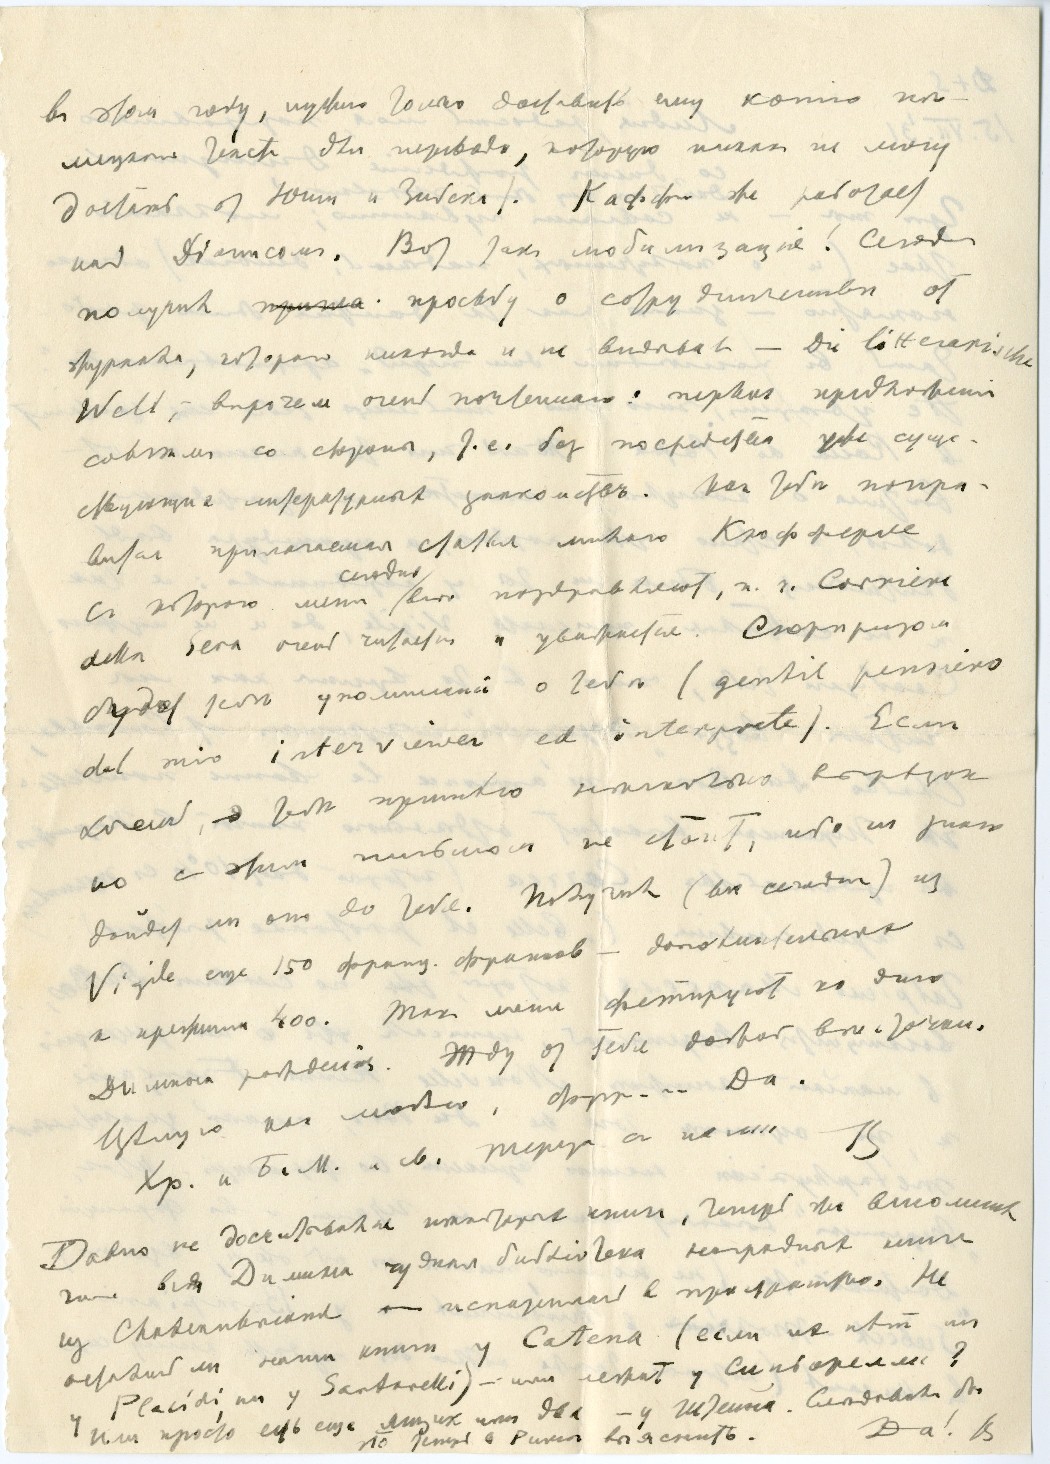 въ этом году, нужно только доставить ему копию нѣ-
мецкаго текста для перевода, которую никак не могу
достать от Юши и Зибека). Каффи же работает
над Діонисомъ. Вот такъ мобилизація! Сегодня
получил просьбу о сотрудничествѣ от
журнала, котораго никогда и не видывал — Die litterarische
Welt, — впрочем очень почтеннаго: первыя предложенія
совсѣмъ со стороны, т. е. без посредства уже суще-
ствующих литературных знакомствъ. Как тебѣ понра-
вится прилагаемая статья милаго Кюфферле,
съ которого меня сегодня поздравляют, п. ч. Corriere
della Sera очень читается и уважается. Сюрпризом
будет тебѣ упоминаніе о тебѣ (gentil pensiero
del mio interviewer ed interprete). Если
хочешь, тебѣ пришлю нѣсколько вырѣзок
но с этим письмом не стоит, ибо не знаю
дойдет ли оно до тебя. Получил (вч сегодня) из
Vigile еще 150 франц. франков — дополнительных
к прежним 400. Так меня фетируют ко дню
Димина рожденія. Жду от тебя добрых весточек.
Цѣлую как люблю, Да.
Хр. и Б. М. и св. Тереза съ нами В
Давно не досчитывался некоторых книг, теперь же вспомнил
что вся Димина чудная библіотека наградных книг
из Chateaubriand испарилась в пространство. Не
остались ли наши книги у Catena (если их нѣт ли
у Placidi, ни у Santarelli) — или лежат у Синьорелли?
Или просто есть еще ящик или два — у Штейна. Слѣдовало бы
это теперь в Римѣ выяснить. Да! В